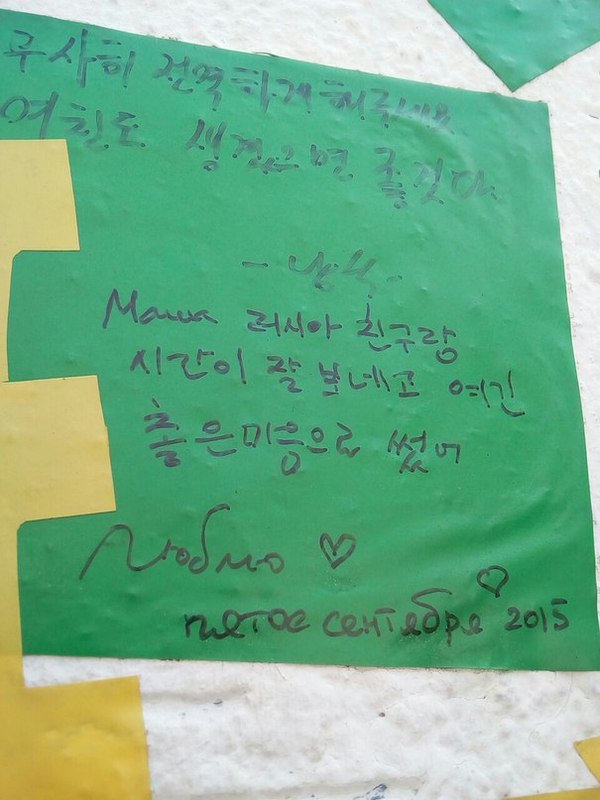 무사히 전역하게 해주세요
여친도 생겼으면 좋겟다
Маша 러시아 친구랑
시간이 잘 보네고 여긴
좋은 미음으로 썼어
Люблю ♡
пятое сентября ♡ 2015